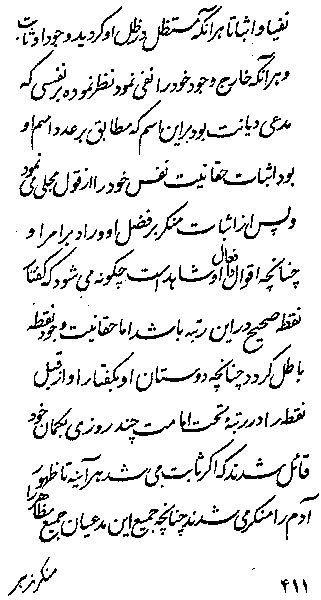 نفیا و اثباتا هر آنکه مستظل در ظل او گردید وجود او ثابت
و هر آنکه خارج وجود خود را نفی نمود نظر نموده بر نفسی که
مدعی دیانت بود بر این اسم که مطابق بر عدد اسم او
بود اثبات حقانیت نفس خود را از قول مجلی می نمود
و پس از اثبات منکر بر فضل او و راد بر امر او
چنانچه اقوال و افعال او شاهد است چگونه می شود که گفتار
نقطه صحیح در این رتبه باشد اما حقانیت وجود نقطه
باطل گردد چنانچه دوستان او بگفتار او از قبل
نقطه را در رتبهٔ تحت امامت چند روزی بگمان خود
قائل شدند که اگر ثابت می شد هر آینه تا ظهور
آدم را منکر می شدند چنانچه جمیع این مدعیان جمیع مظاهر را
منکرند هر
۴۱۱